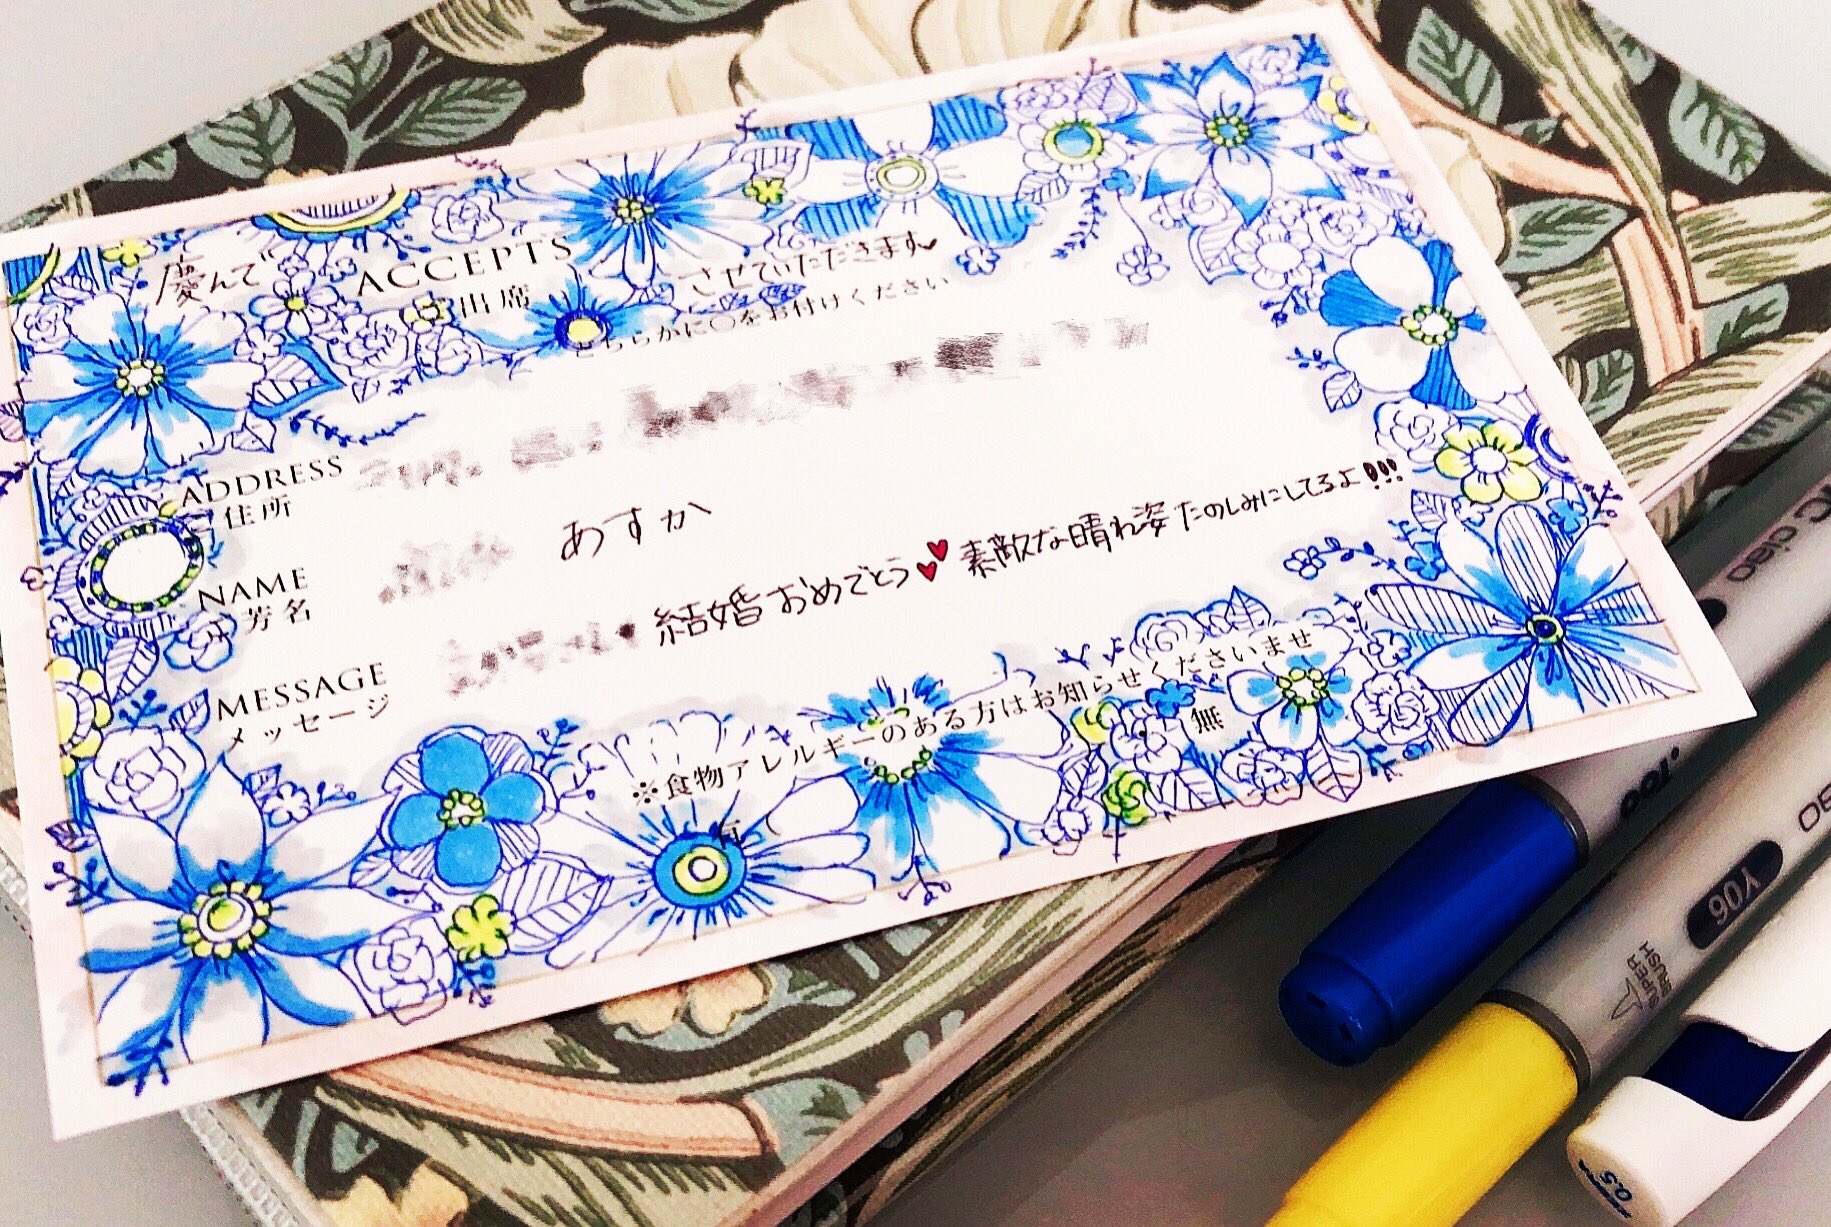 慶んで ACCEPTS させていただきます
出席
どちらかに〇をお付けください
ADDRESS
住所
NAME あすか
芳名
MESSAGE 結婚おめでとう 素敵な晴れ姿たのしみにしてるよ!!!
メッセージ
※食物アレルギーのある方はお知らせくださいませ
無
ciao
Y06
SUPER
BRUSH
0.5